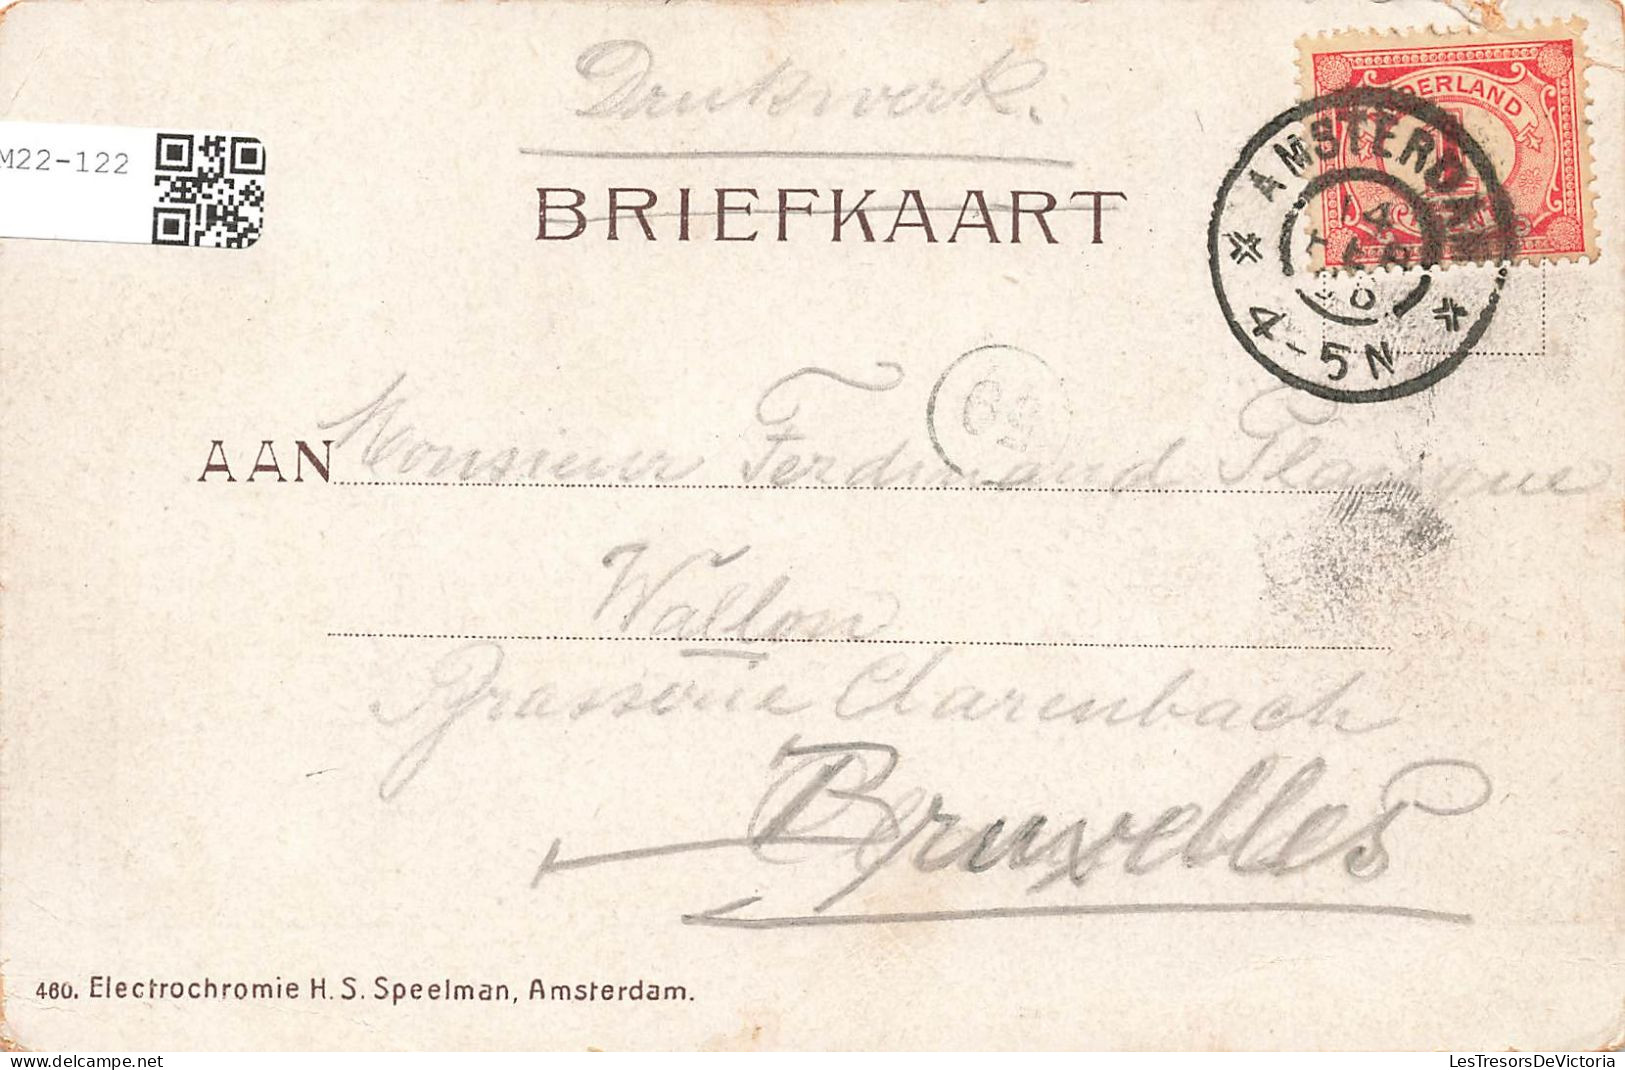 Drukwerk.
M22-122
BRIEFKAART
NEDERLAND
AMSTERDAM
14
4-5N
AAN Monsieur Ferdinand
Wallon
Brasserie Clarenbach
Bruxelles
460. Electrochromie H. S. Speelman, Amsterdam.
www.delcampe.net
LesTresorsDeVictoria